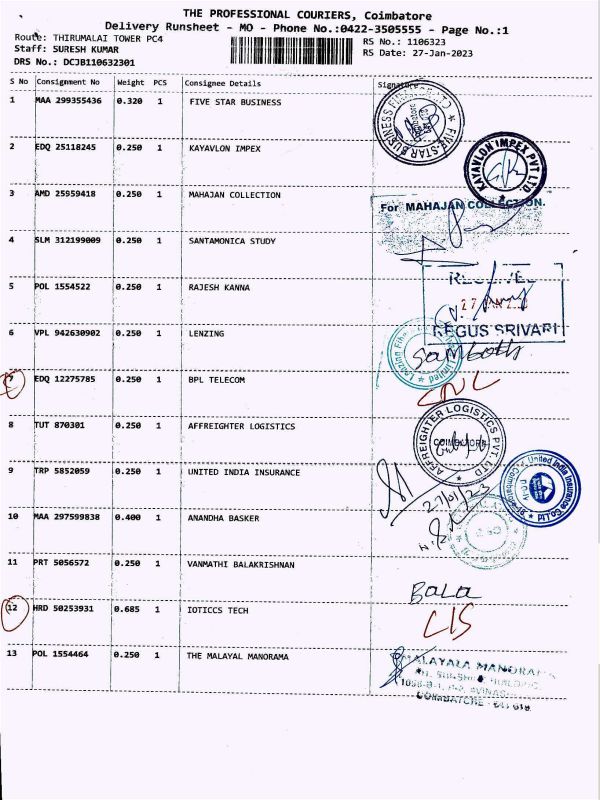 THE PROFESSIONAL COURIERS, Coimbatore
Delivery Runsheet - MO - Phone No.:0422-3505555 - Page No.:1
Route: THIRUMALAI TOWER PC4
RS No.: 1106323
Staff: SURESH KUMAR
RS Date: 27-Jan-2023
DRS No.: DCJB110632301
S No Consignment No Weight PCS Consignee Details Signature
1 MAA 299355436 0.320 1 FIVE STAR BUSINESS
FIVE STAR BUSINESS
2 EDQ 25118245 0.250 1 KAYAVLON IMPEX
KAYAVLON IMPEX PVT LTD.
3 AMD 25959418 0.250 1 MAHAJAN COLLECTION
For MAHAJAN COLLECTION.
4 SLM 312199009 0.250 1 SANTAMONICA STUDY
5 POL 1554522 0.250 1 RAJESH KANNA
REGUS SRIVARI
6 VPL 942630902 0.250 1 LENZING
7 EDQ 12275785 0.250 1 BPL TELECOM
8 TUT 870301 0.250 1 AFFREIGHTER LOGISTICS
AFFREIGHTER LOGISTICS PVT. LTD
COIMBATORE
9 TRP 5852059 0.250 1 UNITED INDIA INSURANCE
United India Insurance
27/01/23
10 MAA 297599838 0.400 1 ANANDHA BASKER
11 PRT 5056572 0.250 1 VANMATHI BALAKRISHNAN
BaLa
12 HRD 50253931 0.685 1 IOTICCS TECH
13 POL 1554464 0.250 1 THE MALAYAL MANORAMA
MALAYALA MANORAMA